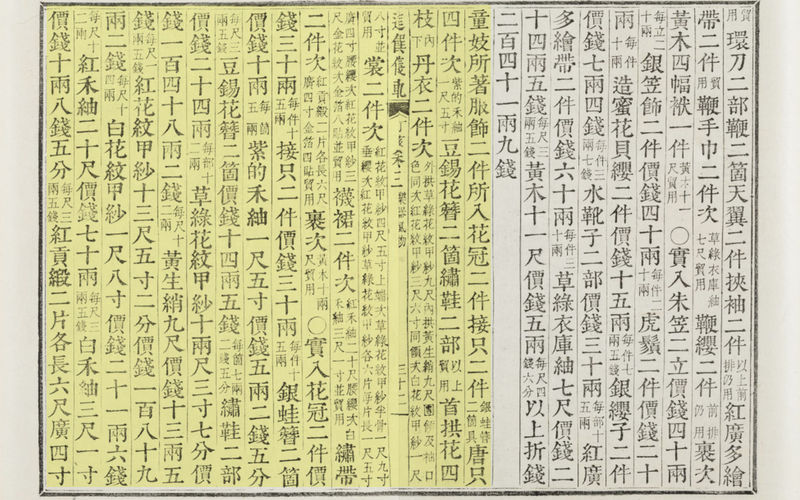 貿用環刀二部鞭二箇天翼二件挾袖二件以上前排仍用紅廣多繪
帶二件貿用鞭手巾二件次草綠衣庫紬七尺貿用鞭纓二件前排仍用裹次
黃木四幅袱一件黃木十一尺貿用○實入朱笠二立價錢四十兩
每立二十兩銀笠飾二件價錢四十兩每件二十兩虎鬚二件價錢二十
兩每件十兩造蜜花貝纓二件價錢十五兩每件七兩五錢銀纓子二件
價錢七兩四錢每件三兩七錢水靴子二部價錢三十兩每部十五兩紅廣
多繪帶二件價錢六十兩每件三十兩草綠衣庫紬七尺價錢二
十四兩五錢每尺三兩五錢黃木十一尺價錢五兩每尺四錢六分以上折錢
二百四十一兩九錢
童妓所著服飾二件所入花冠二件接只二件銀蛙簪二箇具唐只
四件次紫的禾紬一尺五寸豆錫花簪二箇繡鞋二部以上貿用首拱花四
枝內下丹衣二件次外拱草綠花紋甲紗九尺內拱黃生綃九尺團領及袖口色同次紅花紋甲紗三尺六寸同領次白花紋甲紗一尺
進饌儀軌 卷二 三十二
八寸並貿用裳二件次紅花紋甲紗四尺五寸草綠花紋甲紗各六片每片長一尺五寸
廣四寸腰纓次紅花紋甲紗 尺金花紋次金箔八貼並貿用襪裙二件次紅禾紬二十尺腰纓次白禾紬三尺一寸並貿用繡帶
二件次紅貢緞二片各長六尺廣四寸金箔四貼貿用裹次黃木十兩尺貿用○實入花冠二件價
錢三十兩每件十五兩接只二件價錢三十兩每件十五兩銀蛙簪二箇
價錢十兩每箇五兩紫的禾紬一尺五寸價錢五兩二錢五分
每尺三兩五錢豆錫花簪二箇價錢十四兩五錢每箇七兩二錢五分繡鞋二部
價錢二十四兩每部十二兩草綠花紋甲紗十兩尺三寸七分價
錢一百四十八兩二錢每尺十二兩黃生綃九尺價錢十三兩五
錢每尺一兩五錢紅花紋甲紗十三尺五寸二分價錢一百八十九
兩二錢每尺十四兩白花紋甲紗一尺八寸價錢二十一兩六錢
每尺十二兩紅禾紬二十尺價錢七十兩每尺三兩五錢白禾紬三尺一寸
價錢十兩八錢五分每尺三兩五錢紅貢緞二片各長六尺廣四寸